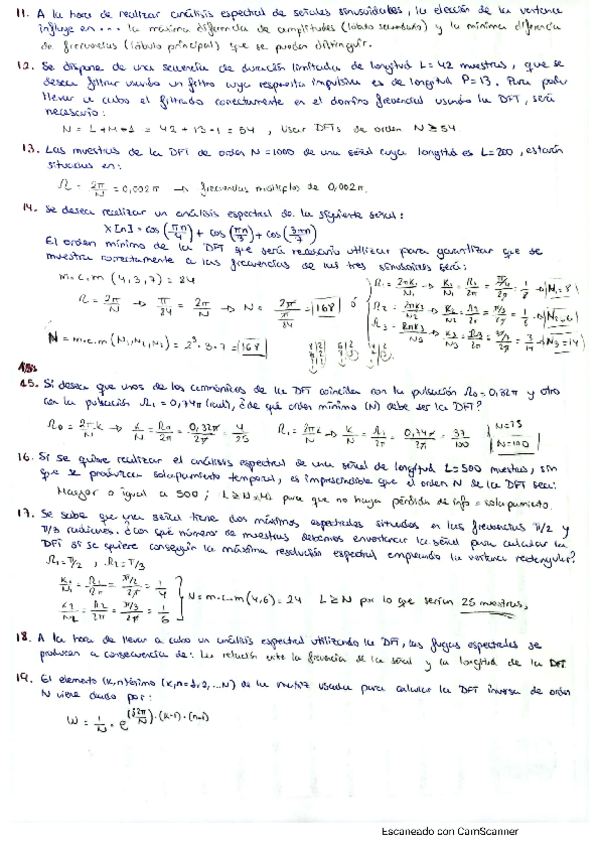 11. A la hora de realizar análisis espectral de señales sinusoidales, la elección de la ventana
influye en... la máxima diferencia de amplitudes (lóbulo secundario) y la mínima diferencia
de frecuencias (lóbulo principal) que se pueden distinguir.
12. Se dispone de una secuencia de duración limitada de longitud L=42 muestras, que se
desea filtrar usando un filtro cuya respuesta impulsiva es de longitud P=13. Para poder
llevar a cabo el filtrado correctamente en el dominio frecuencial usando la DFT, será
necesario:
N = L+M-1 = 42+13-1 = 54, usar DFTs de orden N ≥ 54
13. Las muestras de la DFT de orden N=1000 de una señal cuya longitud es L=200, estarán
situadas en:
Ω = 2π/N = 0,002π → frecuencias múltiplos de 0,002π.
14. Se desea realizar un análisis espectral de la siguiente señal:
x[n] = cos(πn/4) + cos(πn/3) + cos(3πn/7)
El orden mínimo de la DFT que será necesario utilizar para garantizar que se
muestra correctamente a las frecuencias de las tres sinusoides será:
m.c.m (4,3,7) = 84
Ω = 2π/N → π/84 = 2π/N → N = 2π/(π/84) = 168 ó
Ω1 = 2πk1/N1 → k1/N1 = Ω1/2π = (π/4)/2π = 1/8 → N1=8
Ω2 = 2πk2/N2 → k2/N2 = Ω2/2π = (π/3)/2π = 1/6 → N2=6
Ω3 = 2πk3/N3 → k3/N3 = Ω3/2π = 3/14 → N3=14
N = m.c.m (N1,N2,N3) = 2³·3·7 = 168
15. Si desea que unos de los armónicos de la DFT coincidan con la pulsación Ω0=0,32π y otro
con la pulsación Ω1=0,74π (rad), ¿de qué orden mínimo (N) debe ser la DFT?
Ω0 = 2πk/N → k/N = Ω0/2π = 0,32π/2π = 4/25 Ω1 = 2πk/N → k/N = Ω1/2π = 0,74π/2π = 37/100 N=25 N=100
16. Si se quiere realizar el análisis espectral de una señal de longitud L=500 muestras, sin
que se produzca solapamiento temporal, es imprescindible que el orden N de la DFT sea:
Mayor o igual a 500; para que no haya pérdida de info = solapamiento.
17. Se sabe que una señal tiene dos máximos espectrales situados en las frecuencias π/2 y
π/3 radianes. ¿Con qué número de muestras debemos enventanar la señal para calcular la
DFT si se quiere conseguir la máxima resolución espectral empleando la ventana rectangular?
Ω1 = π/2, Ω2 = π/3
k1/N1 = Ω1/2π = (π/2)/2π = 1/4
k2/N2 = Ω2/2π = (π/3)/2π = 1/6
N = m.c.m (4,6) = 24 L ≥ N por lo que serían 25 muestras.
18. A la hora de llevar a cabo un análisis espectral utilizando la DFT, las fugas espectrales se
producen a consecuencia de: La relación entre la frecuencia de la señal y la longitud de la DFT
19. El elemento (k,n)ésimo (k,n=1,2,...N) de la matriz usada para calcular la DFT inversa de orden
N viene dado por:
W = 1/N · e^(j2π/N)·(k-1)·(n-1)
Escaneado con CamScanner